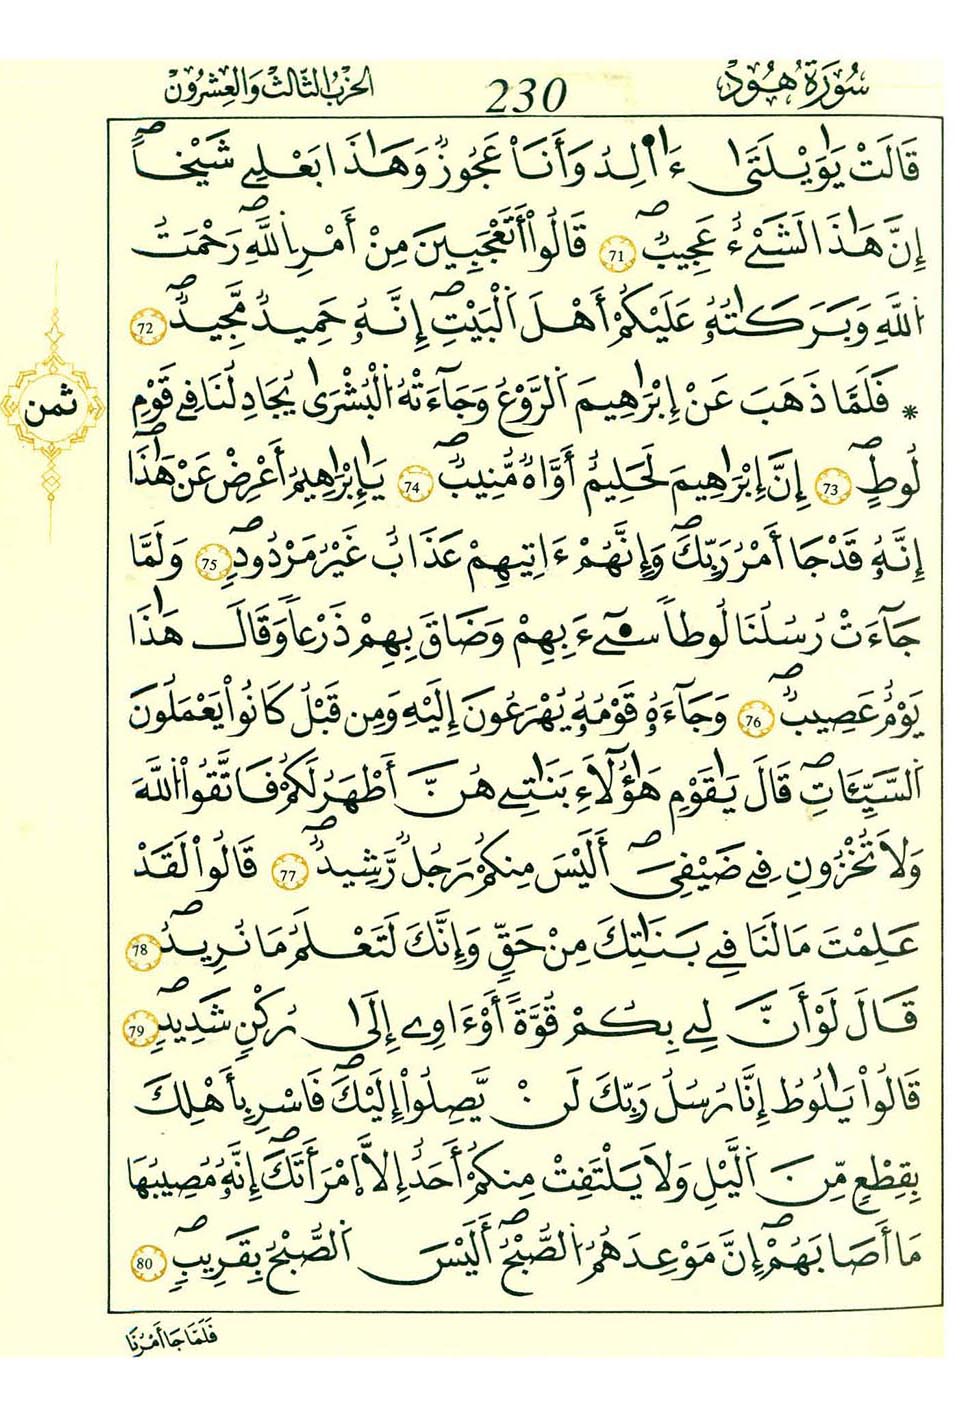 سُورَةُ هُودٍ
230
الحزب الثالث والعشرون
قَالَتْ يَٰوَيْلَتَىٰ ءَا۬لِدُ وَأَنَا۠ عَجُوزٞ وَهَٰذَا بَعْلِے شَيْخاًۖ
إِنَّ هَٰذَا لَشَےْءٌ عَجِيبٞۖ 71 قَالُوٓاْ أَتَعْجَبِينَ مِنْ أَمْرِ اِ۬للَّهِۖ رَحْمَتُ
اُ۬للَّهِ وَبَرَكَٰتُهُۥ عَلَيْكُمُۥٓ أَهْلَ اَ۬لْبَيْتِۖ إِنَّهُۥ حَمِيدٞ مَّجِيدٞۖ 72
* فَلَمَّا ذَهَبَ عَنْ إِبْرَٰهِيمَ اَ۬لرَّوْعُ وَجَآءَتْهُ اُ۬لْبُشْرَىٰ يُجَٰدِلُنَا فِے قَوْمِ
لُوطٍۖ 73 إِنَّ إِبْرَٰهِيمَ لَحَلِيمٌ أَوَّٰهٞ مُّنِيبٞۖ 74 يَٰٓإِبْرَٰهِيمُ أَعْرِضْ عَنْ هَٰذَاۖ
إِنَّهُۥ قَدْ جَا أَمْرُ رَبِّكَۖ وَإِنَّهُمُۥٓ ءَاتِيهِمْ عَذَابٌ غَيْرُ مَرْدُودٖۖ 75 وَلَمَّا
جَآءَتْ رُسُلُنَا لُوطاٗ سِےٓءَ بِهِمْ وَضَاقَ بِهِمْ ذَرْعاٗ وَقَالَ هَٰذَا
يَوْمٌ عَصِيبٞۖ 76 وَجَآءَهُۥ قَوْمُهُۥ يُهْرَعُونَ إِلَيْهِ وَمِن قَبْلُ كَانُواْ يَعْمَلُونَ
اَ۬لسَّيِّـَٔاتِۖ قَالَ يَٰقَوْمِ هَٰٓؤُلَآءِ بَنَاتِے هُنَّ أَطْهَرُ لَكُمْ فَاتَّقُواْ اُ۬للَّهَ
وَلَا تُخْزُونِ فِے ضَيْفِيَۖ أَلَيْسَ مِنكُمْ رَجُلٞ رَّشِيدٞۖ 77 قَالُواْ لَقَدْ
عَلِمْتَ مَا لَنَا فِے بَنَٰتِكَ مِنْ حَقّٖ وَإِنَّكَ لَتَعْلَمُ مَا نُرِيدُۖ 78
قَالَ لَوْ أَنَّ لِے بِكُمْ قُوَّةً أَوْ ءَاوِے إِلَىٰ رُكْنٖ شَدِيدٖۖ 79
قَالُواْ يَٰلُوطُ إِنَّا رُسُلُ رَبِّكَ لَنْ يَّصِلُوٓاْ إِلَيْكَۖ فَاسْرِ بِأَهْلِكَ
بِقِطْعٖ مِّنَ اَ۬لَّيْلِ وَلَا يَلْتَفِتْ مِنكُمُۥٓ أَحَدٌ إِلَّا اَ۪مْرَأَتَكَۖ إِنَّهُۥ مُصِيبُهَا
مَا أَصَابَهُمُۥٓۖ إِنَّ مَوْعِدَهُمُ اُ۬لصُّبْحُۖ أَلَيْسَ اَ۬لصُّبْحُ بِقَرِيبٖۖ 80
ثمن
فَلَمَّا جَا أَمْرُنَا